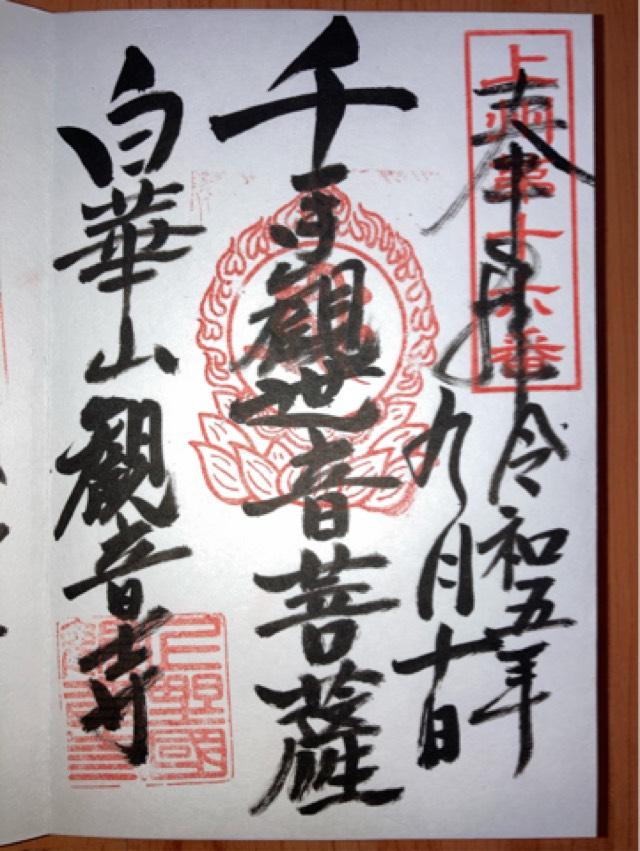 奉拝
令和五年
九月十日
千手觀世音菩薩
白華山觀音寺
上州第十六番